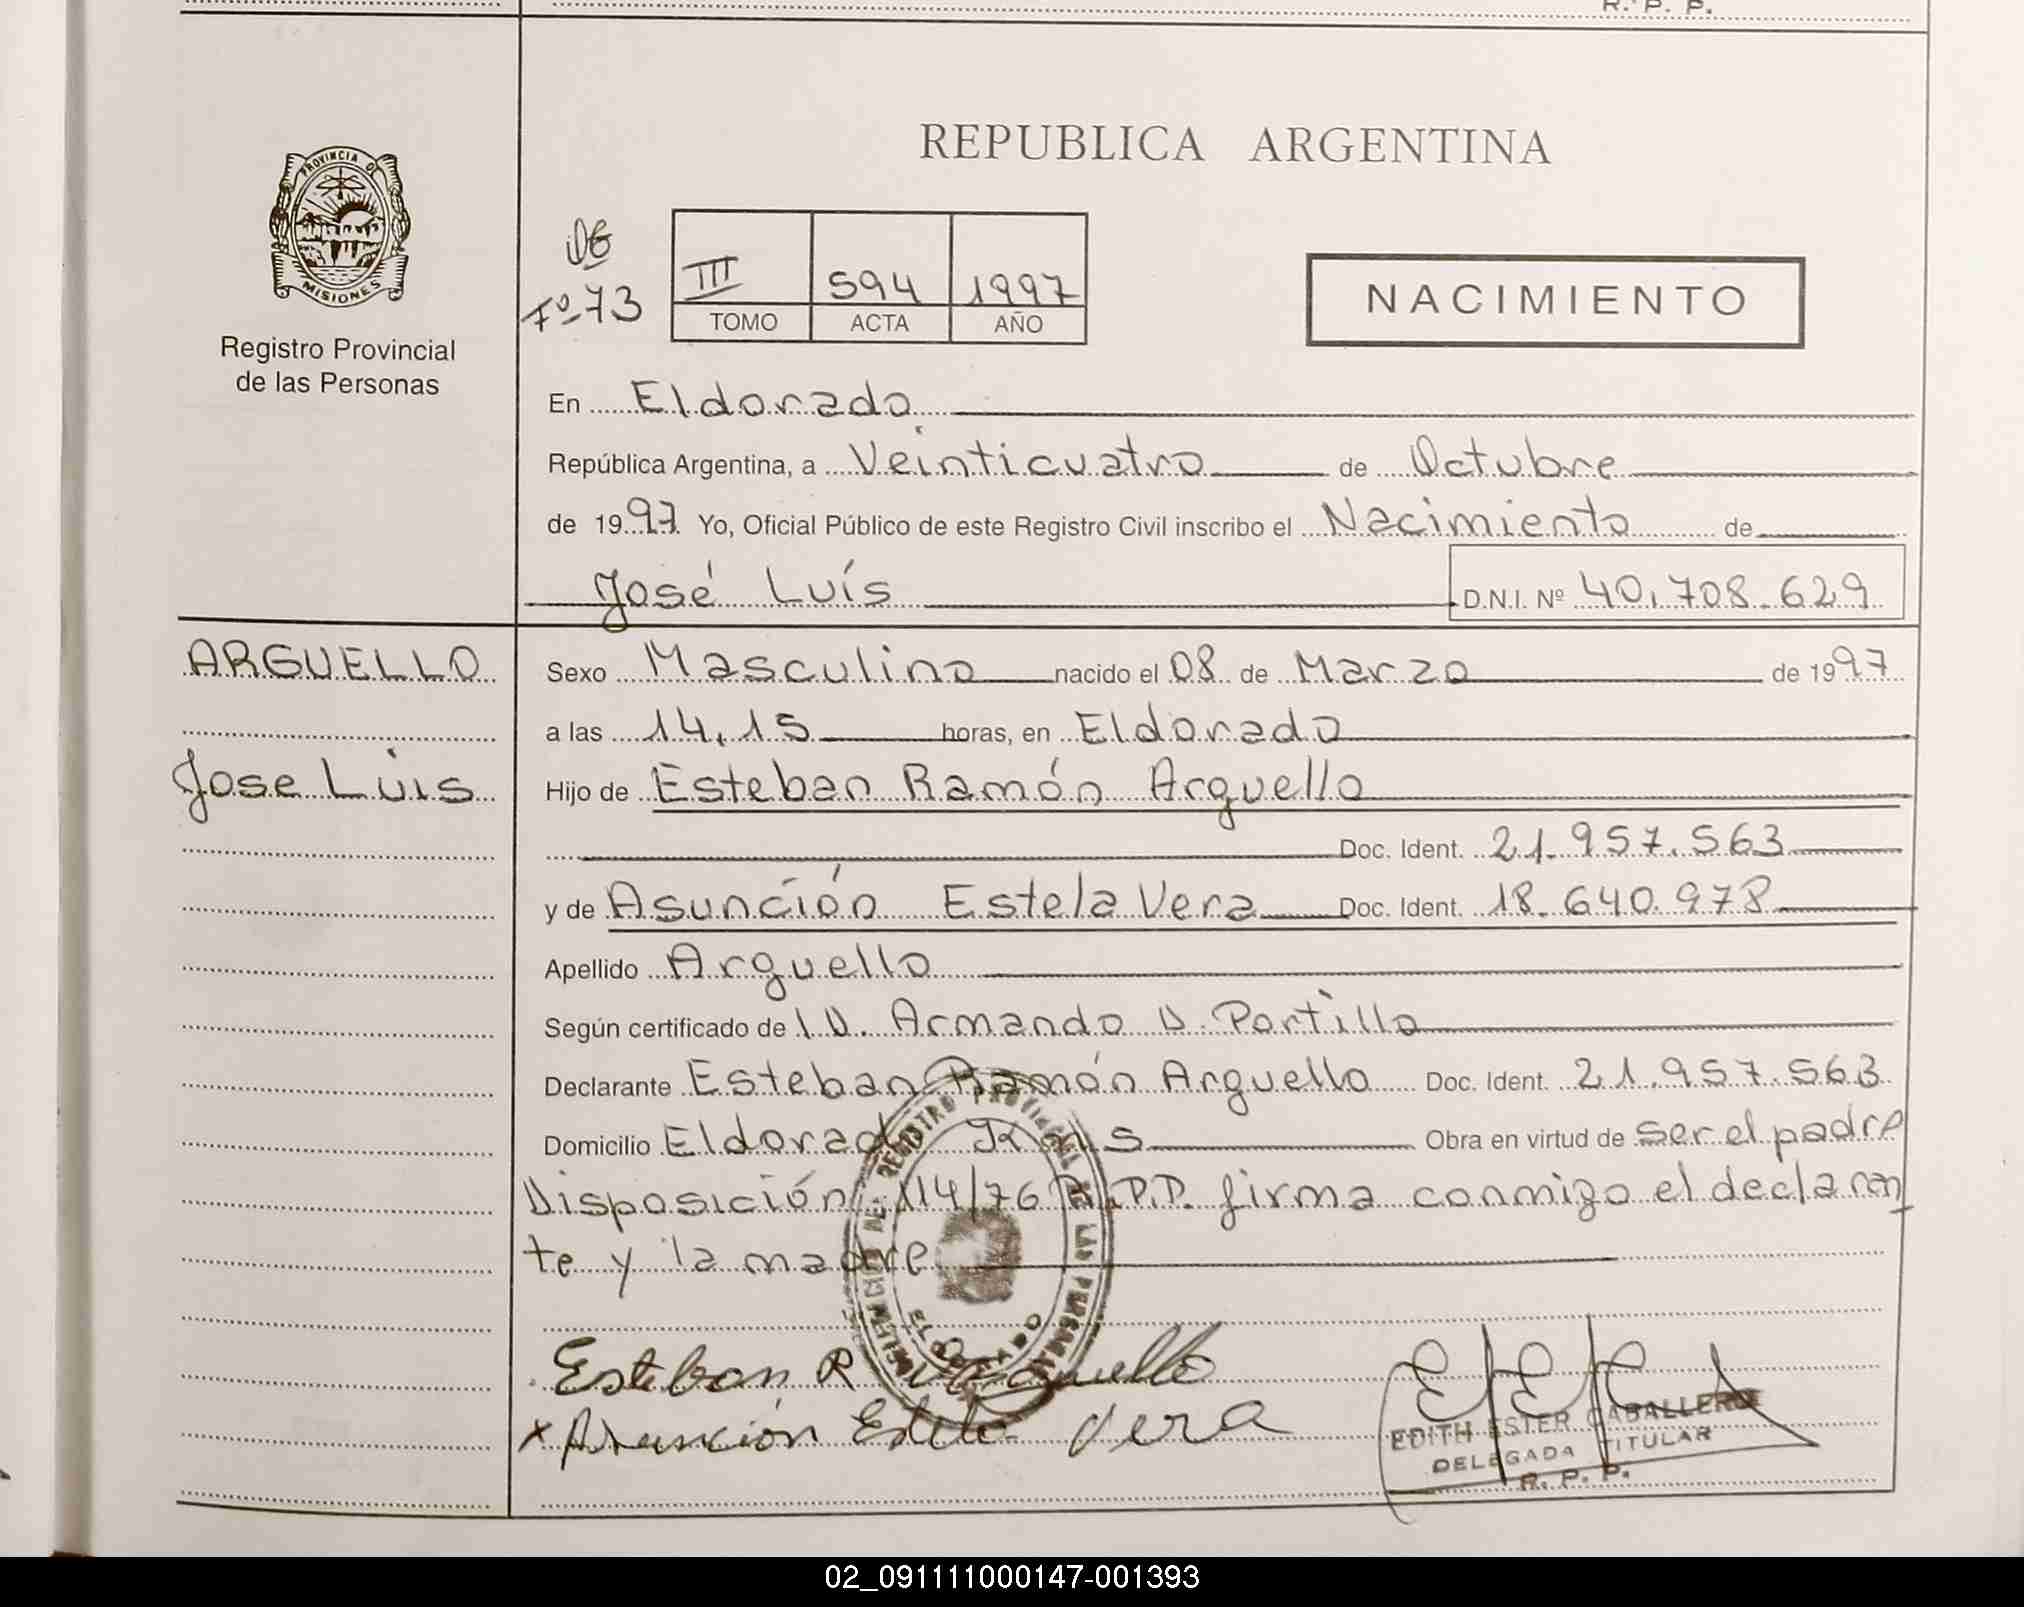 R. P. P.
REPUBLICA ARGENTINA
PROVINCIA DE
MISIONES
Registro Provincial
de las Personas
Fº 73
III 594 1997
TOMO ACTA AÑO
NACIMIENTO
En Eldorado
República Argentina, a Veinticuatro de Octubre
de 1997 Yo, Oficial Público de este Registro Civil inscribo el Nacimiento de
José Luís D.N.I. Nº 40.708.629
ARGUELLO
Jose Luis
Sexo Masculino nacido el 08 de Marzo de 1997
a las 14,15 horas, en Eldorado
Hijo de Esteban Ramón Arguello
Doc. Ident. 21.957.563
y de Asunción Estela Vera Doc. Ident. 18.640.978
Apellido Arguello
Según certificado de I.D. Armando D. Portillo
Declarante Esteban Ramón Arguello Doc. Ident. 21.957.563
Domicilio Eldorado Obra en virtud de ser el padre
Disposición 114/76 R.P.P. firma conmigo el declaran
te y la madre
REGISTRO PROVINCIAL DE LAS PERSONAS
ELDORADO
Esteban R Arguello
x Asunción Estela Vera
EDITH ESTER CABALLERO
DELEGADA TITULAR
R. P. P.
02_091111000147-001393